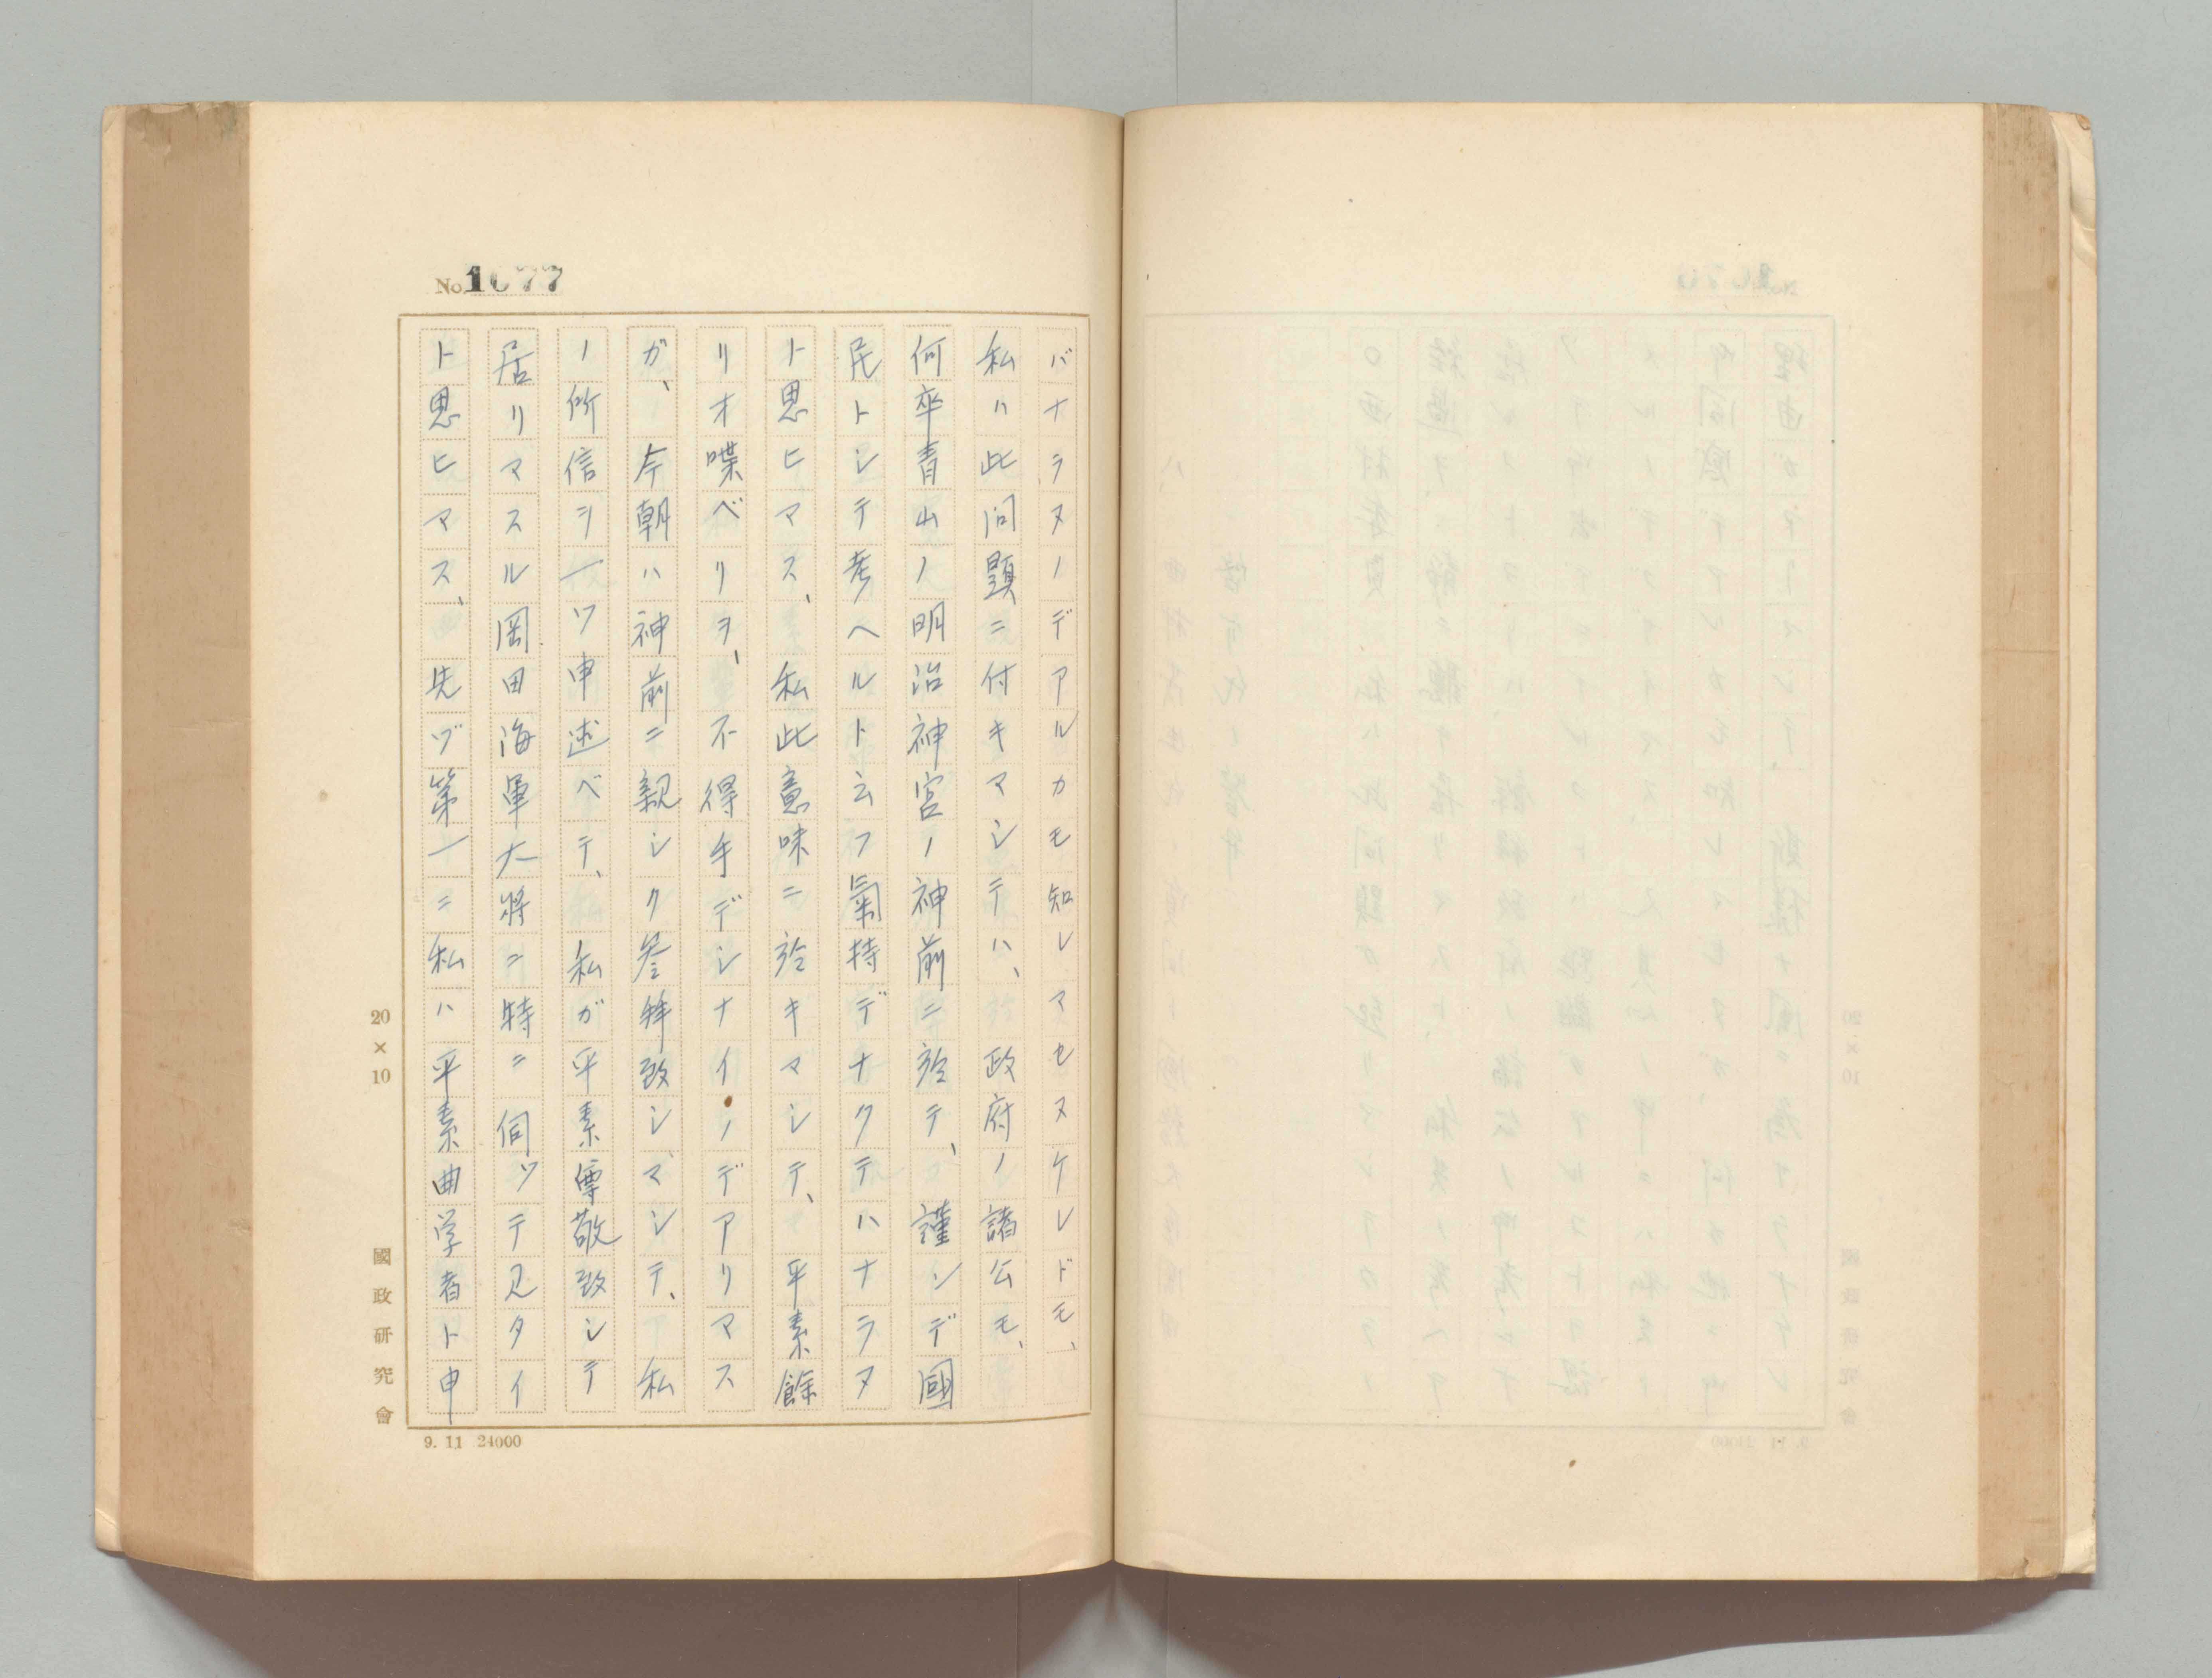 No 1077
バナラヌノデアルカモ知レマセヌケレドモ、
私ハ此問題ニ付キマシテハ、政府ノ諸公モ、
何卒青山ノ明治神宮ノ神前ニ於テ、謹ンデ國
民トシテ考ヘルト云フ氣持デナクテハナラヌ
ト思ヒマス、私此意味ニ於キマシテ、平素餘
リオ喋ベリヲ、不得手デシナイノデアリマス
ガ、今朝ハ神前ニ親シク参拝致シマシテ、私
ノ所信ヲ一ツ申述ベテ、私ガ平素尊敬致シテ
居リマスル岡田海軍大将ニ特ニ伺ツテ見タイ
ト思ヒマス、先ヅ第一ニ私ハ平素曲学者ト申
20×10
國政研究會
9. 11 24000